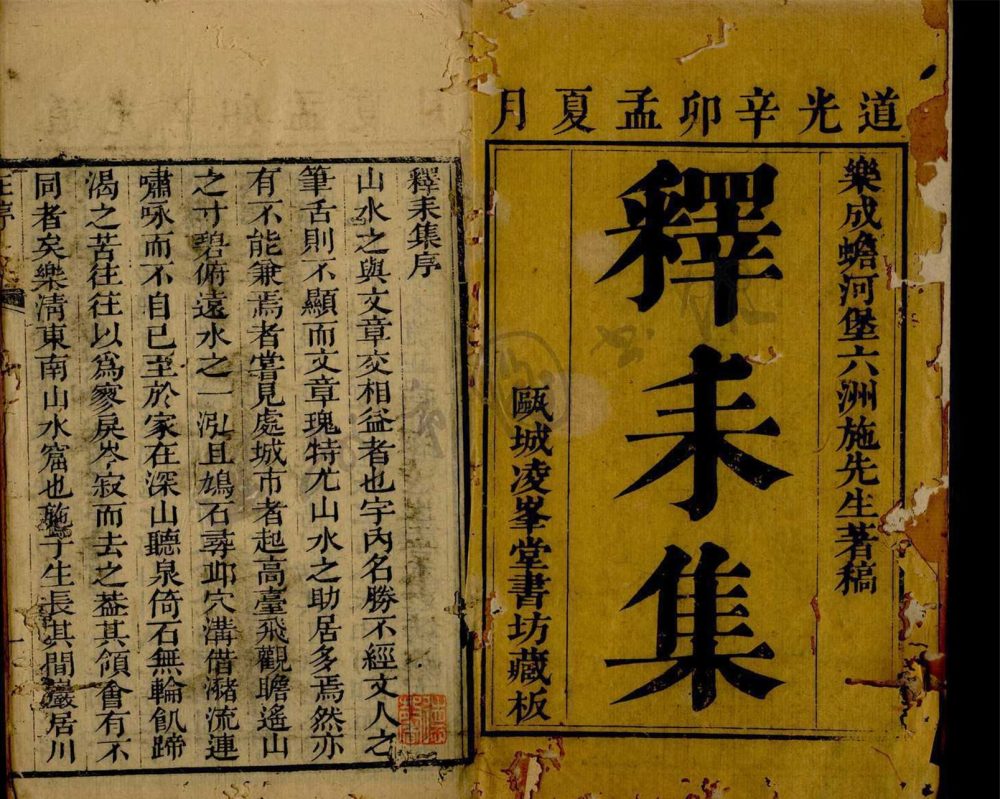 道光辛卯孟夏月
樂成蟾河堡六洲施先生著稿
釋耒集
甌城凌峯堂書坊藏板
釋耒集序
山水之與文章交相益者也宇內名勝不經文人之
筆舌則不顯而文章瑰特尤山水之助居多焉然亦
有不能兼焉者嘗見處城市者起高臺飛觀瞻遙山
之寸碧俯遠水之一泓且鳩石尋邱穴溝借瀦流連
嘯咏而不自已至於家在深山聽泉倚石無輪飢蹄
渴之苦往往以爲寥戾岑寂而去之葢其領會有不
同者矣樂淸東南山水窟也施子生長其間巖居川